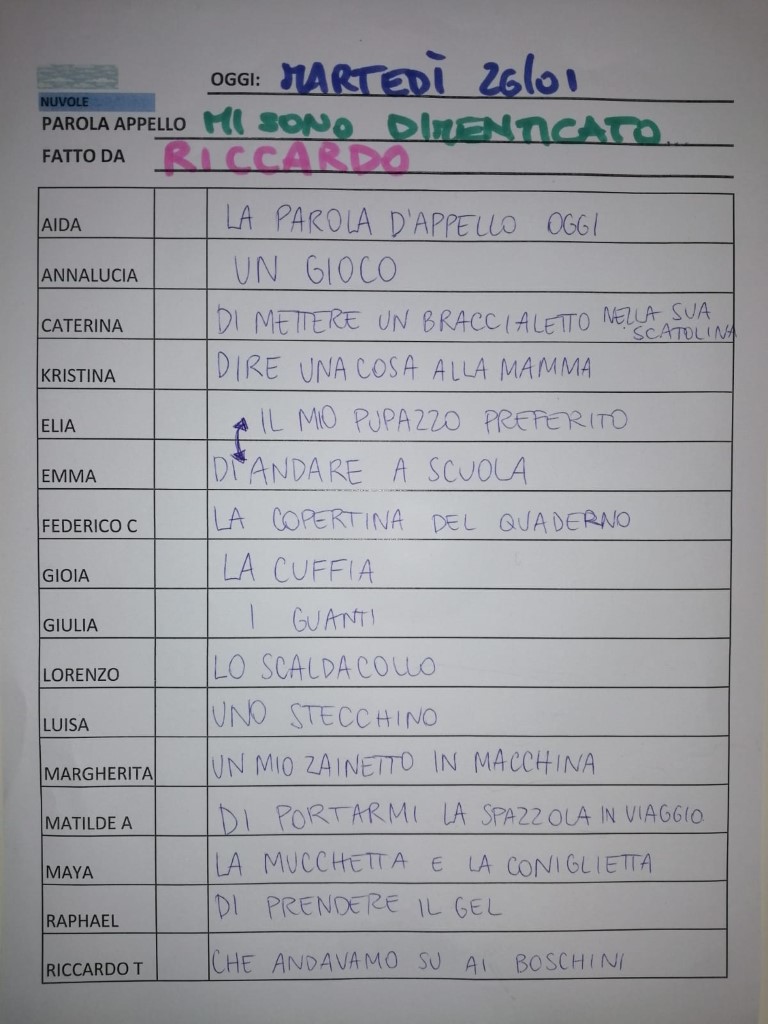 OGGI: MARTEDÌ 26/01
NUVOLE
PAROLA APPELLO MI SONO DIMENTICATO...
FATTO DA RICCARDO
AIDA LA PAROLA D'APPELLO OGGI
ANNALUCIA UN GIOCO
CATERINA DI METTERE UN BRACCIALETTO NELLA SUA
SCATOLINA
KRISTINA DIRE UNA COSA ALLA MAMMA
ELIA IL MIO PUPAZZO PREFERITO
EMMA DI ANDARE A SCUOLA
FEDERICO C LA COPERTINA DEL QUADERNO
GIOIA LA CUFFIA
GIULIA I GUANTI
LORENZO LO SCALDACOLLO
LUISA UNO STECCHINO
MARGHERITA UN MIO ZAINETTO IN MACCHINA
MATILDE A DI PORTARMI LA SPAZZOLA IN VIAGGIO
MAYA LA MUCCHETTA E LA CONIGLIETTA
RAPHAEL DI PRENDERE IL GEL
RICCARDO T CHE ANDAVAMO SU AI BOSCHINI